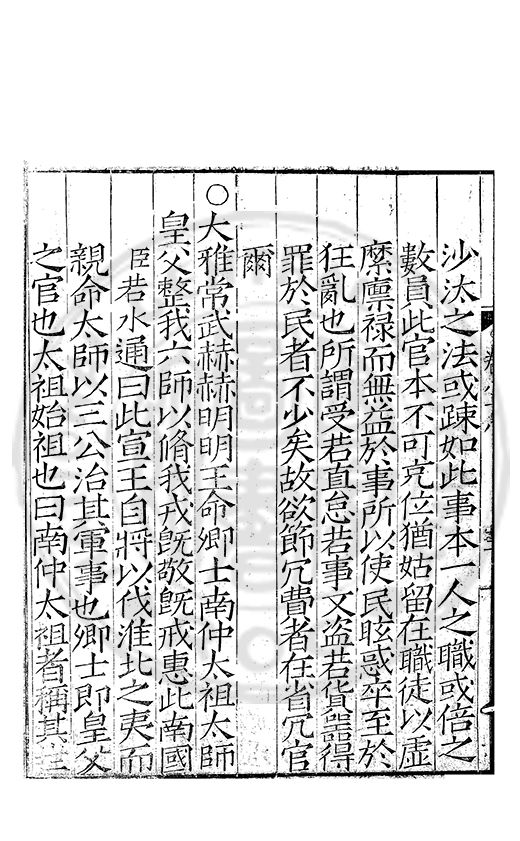 沙汰之法或踈如此事本一人之職或倍之
數員此官本不可充位猶姑留在職徒以虛
縻廪禄而無益於事所以使民眩惑卒至於
狂亂也所謂受若直怠若事文盗若貨噐得
罪於民者不少矣故欲節冗費者在省冗官
爾
○大雅常武赫赫明明王命卿士南仲太祖太師
皇父整我六師以脩我戎旣敬旣戒惠此南國
臣若水通曰此宣王自將以伐淮北之夷而
親命太師以三公治其軍事也卿士即皇父
之官也太祖始祖也曰南仲太祖者稱其